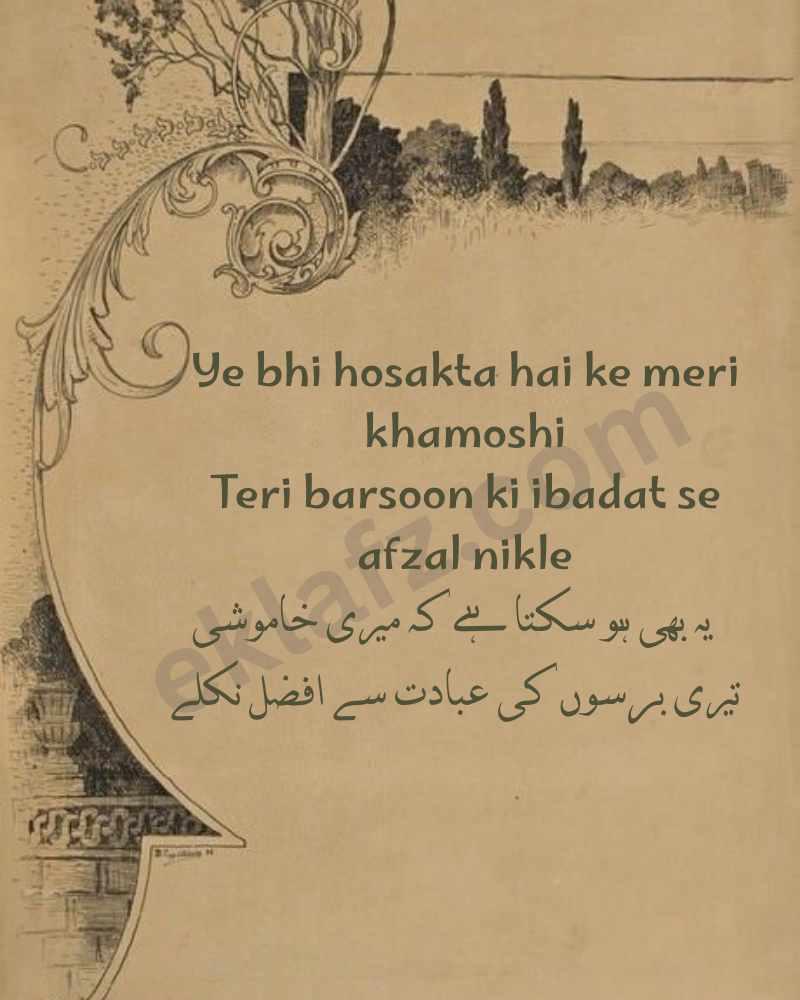 Ye bhi hosakta hai ke meri
khamoshi
Teri barsoon ki ibadat se
afzal nikle
یہ بھی ہو سکتا ہے کہ میری خاموشی
تیری برسوں کی عبادت سے افضل نکلے
eklafz.com